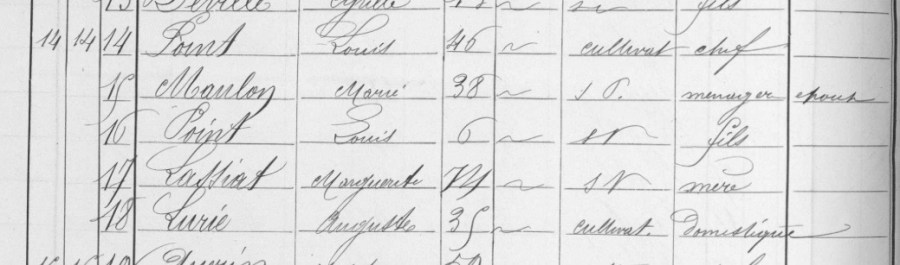 13 Deville Cyrille fils
14 14 14 Point Louis 46 ~ cultivat chef
15 Maulon Marie 38 ~ s P. menager epouse
16 Point Louis 6 ~ s P fils
17 Lassiat Marguerite 74 ~ s P mère
18 Lurie Auguste 35 ~ cultivat. Domestique